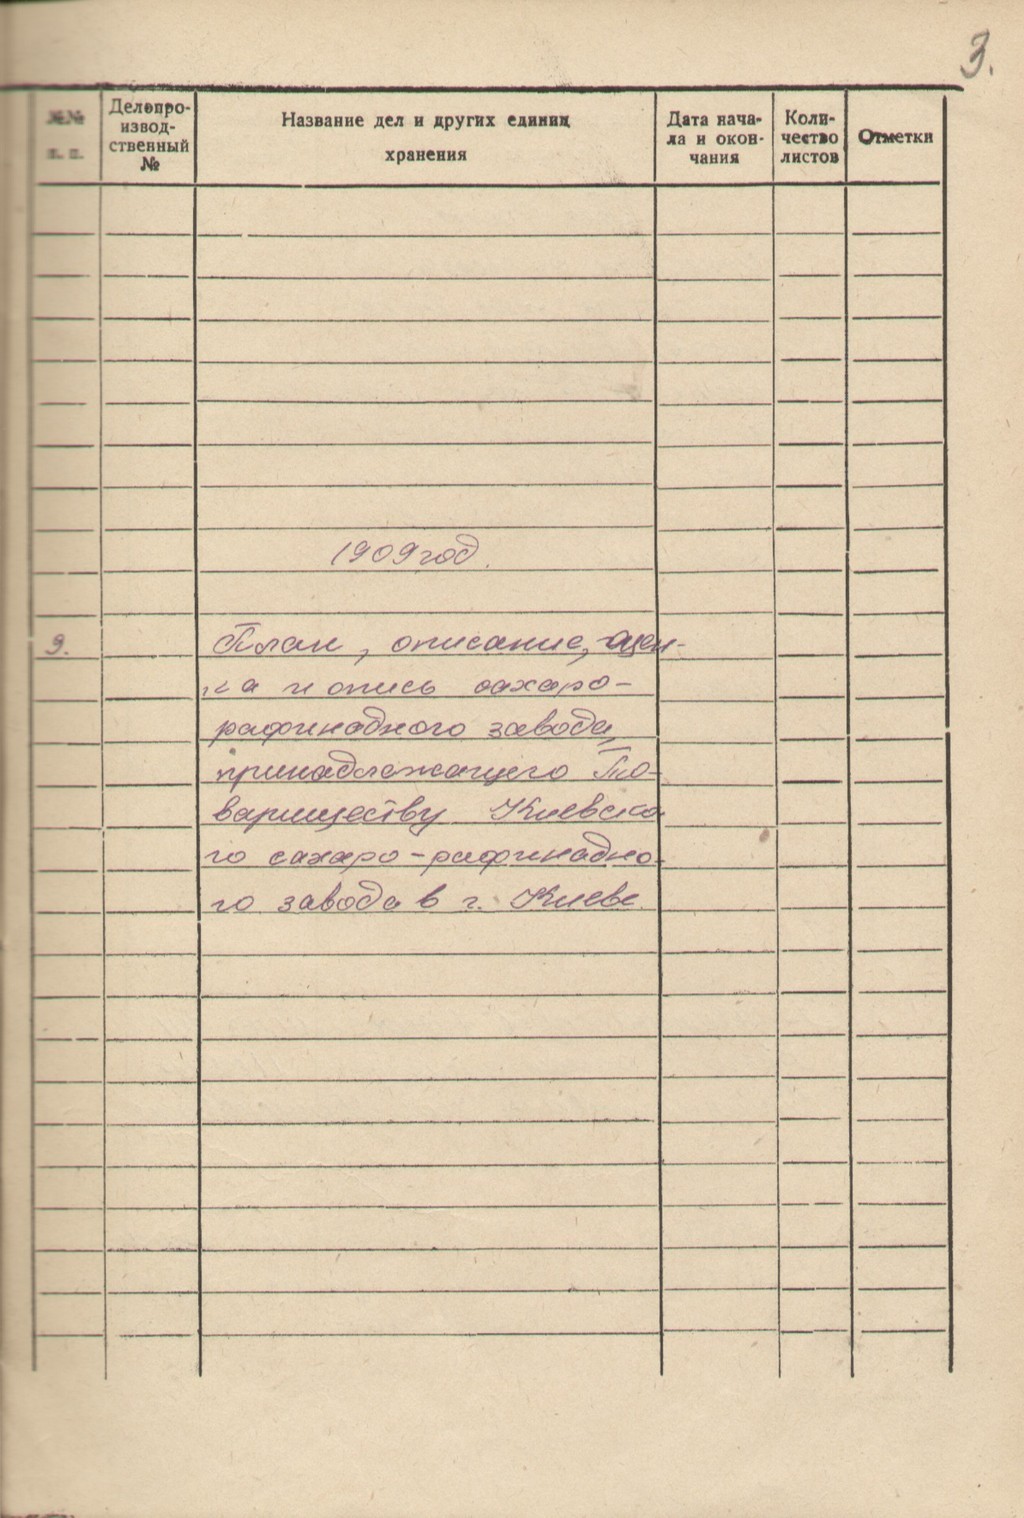 3.
№№
п. п.
Делопро-
извод-
ственный
№
Название дел и других единиц
хранения
Дата нача-
ла и окон-
чания
Коли-
чество
листов
Отметки
1909 год.
9.
План, описание, оцен-
ка и опись сахаро-
рафинадного завода,
принадлежащего То-
вариществу Киевско
го сахаро-рафинадно-
го завода в г. Киеве.